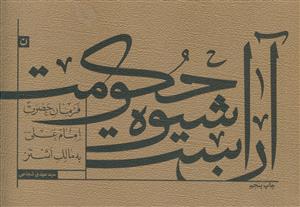 آراست
شیوه
حکومت
فرمان حضرت
امام علی
به مالک اشتر
سید مهدی شجاعی
چاپ پنجم